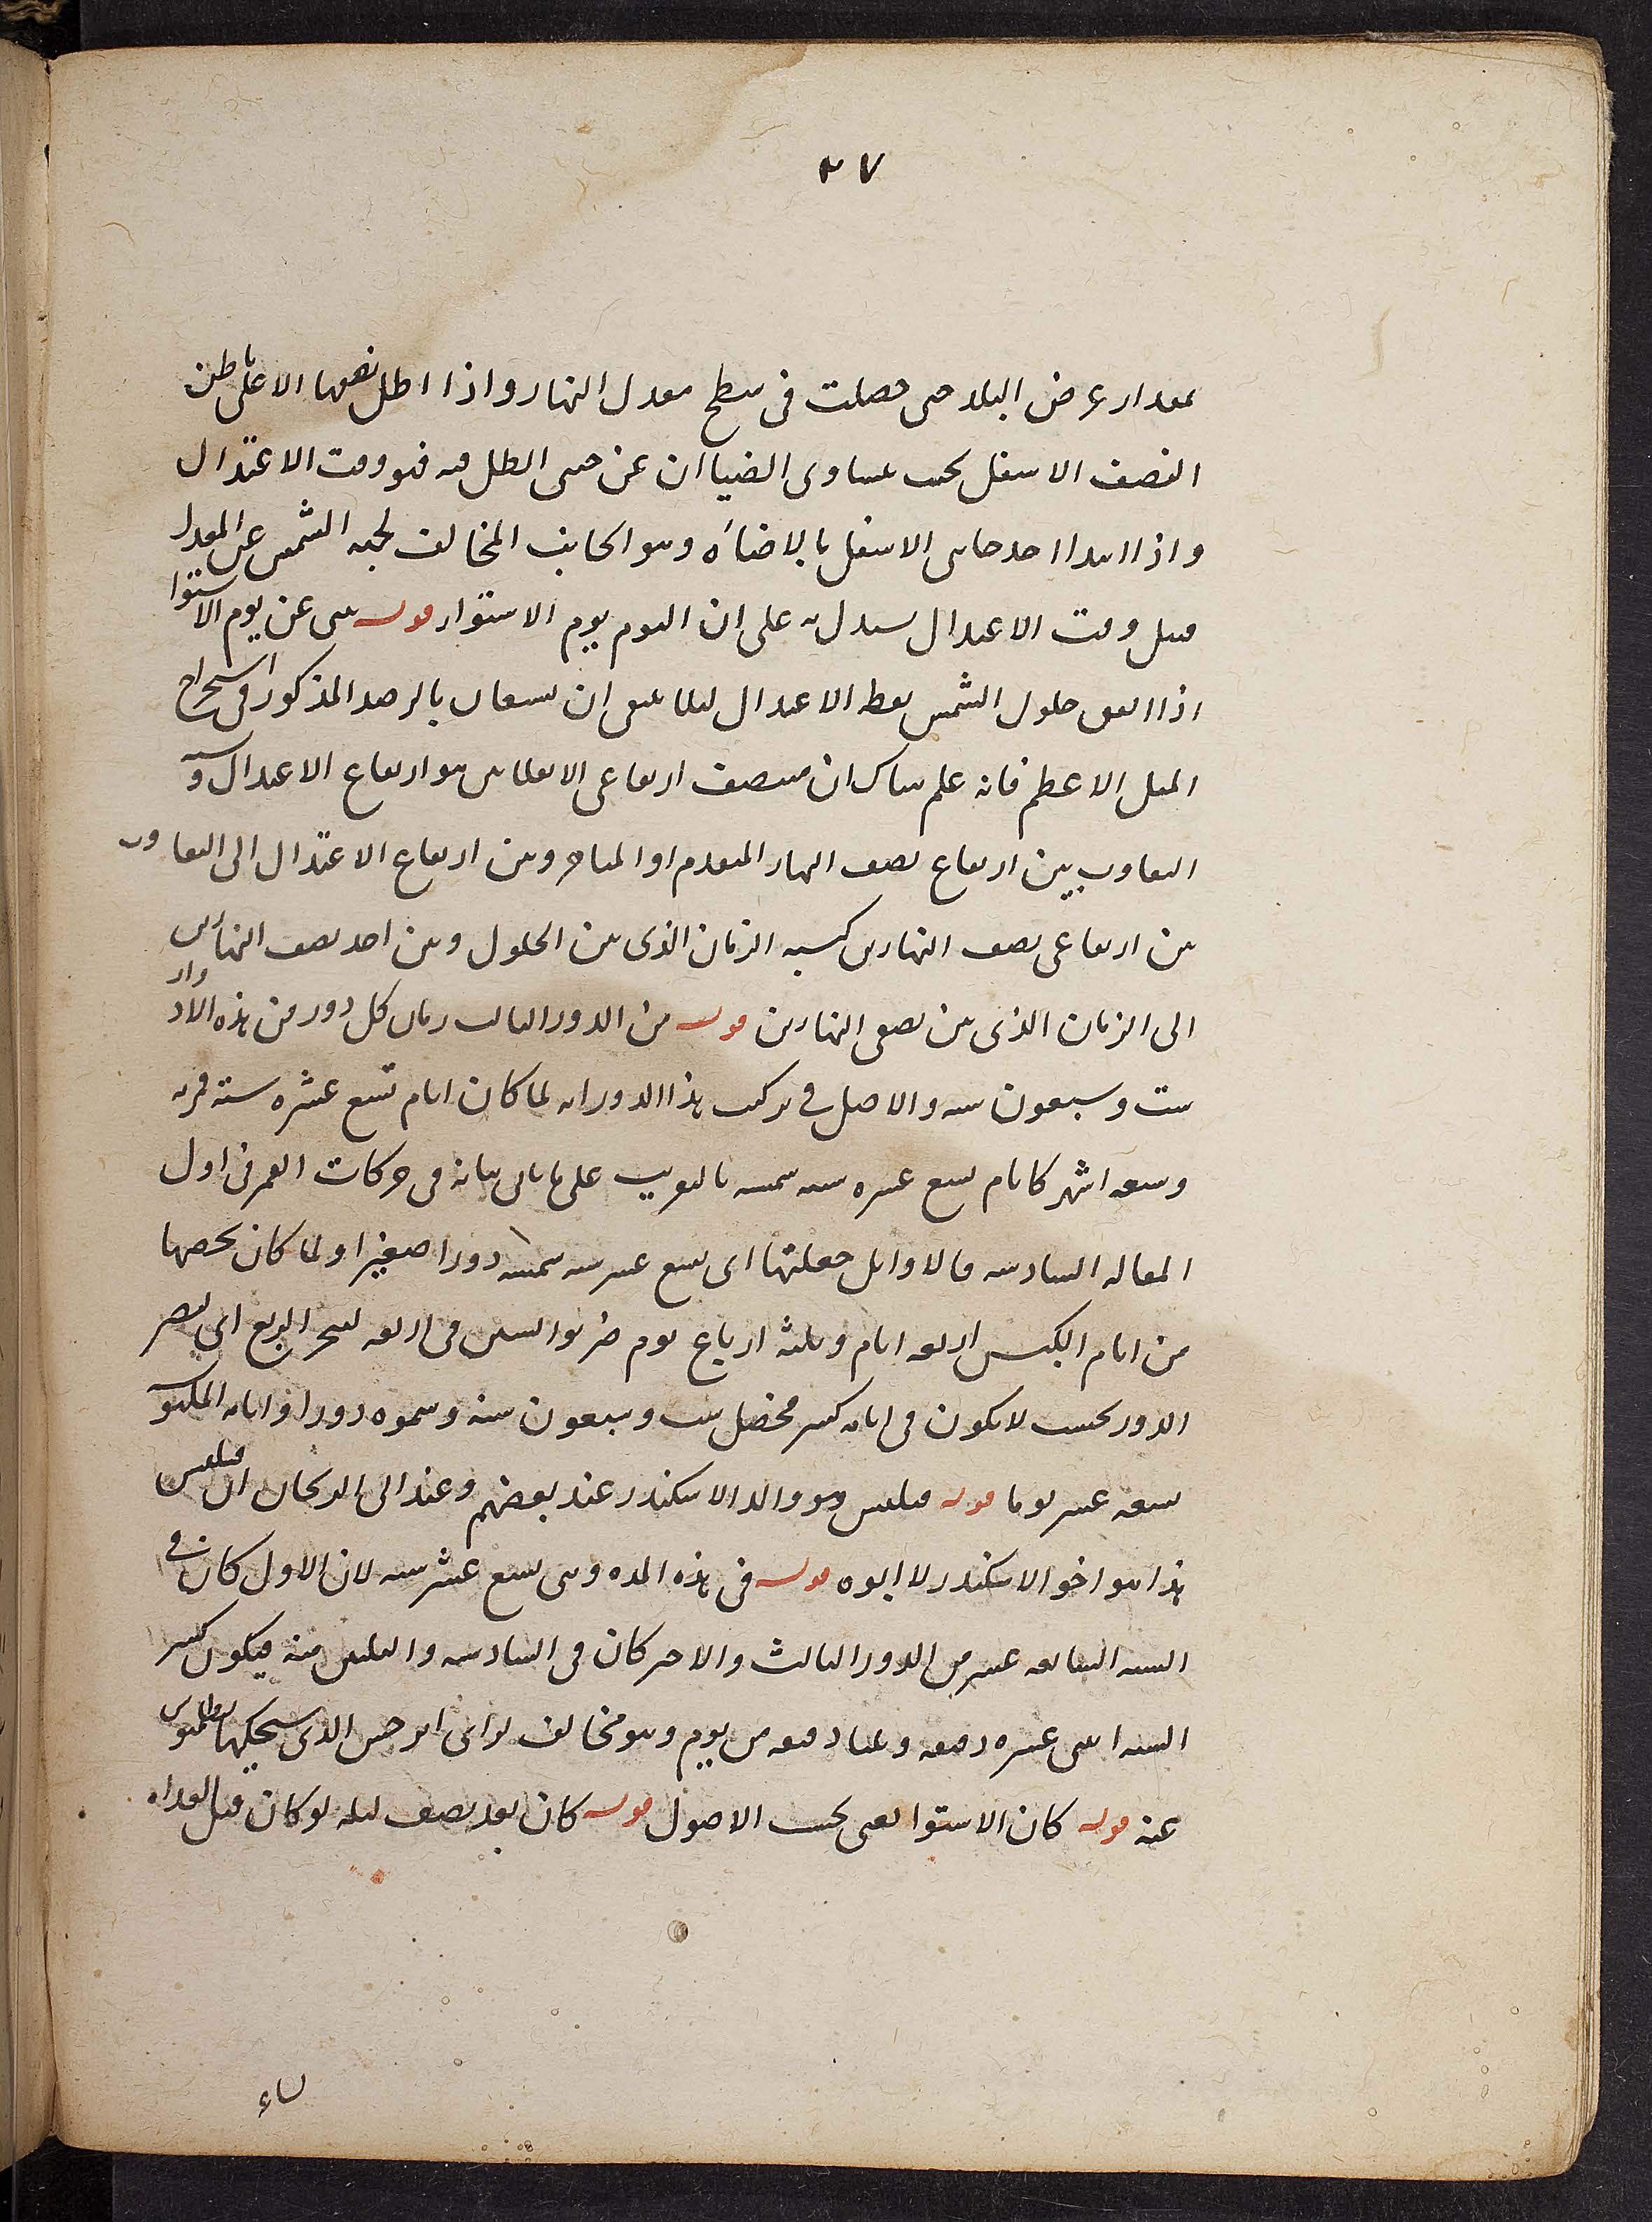 ٣٧
بمقدار عرض البلد حتى حصلت فى سطح معدل النهار واذا اظل نصفها الاعلى باطن
النصف الاسفل بحيث يتساوى الضياآن عن جنبى الظل فيه فهو وقت الاعتدال
واذا ابتدا احد جانبى الاسفل بالاضاءة وهو الجانب المخالف لجهة الشمس عن المعدل
قبل وقت الاعتدال يستدل به على ان اليوم يوم الاستواء قوله متى عن يوم الاستوا
اذا اتفق حلول الشمس نقطة الاعتدال ليلا ينبغى ان يستعان بالرصد المذكور فى استخراج
الميل الاعظم فانه علم هناك ان منتصف ارتفاعى الانقلابين هو ارتفاع الاعتدال ونسبة
التفاوت بين ارتفاع نصف النهار المتقدم او المتاخر وبين ارتفاع الاعتدال الى التفاوت
بين ارتفاعى نصف النهارين كنسبة الزمان الذى بين الحلول وبين احد نصف النهارين
الى الزمان الذى بين نصفى النهارين قوله من الدور الثالث زمان كل دور من هذه الادوار
ست وسبعون سنة والاصل فى تركيب هذا الدور انه لما كان ايام تسع عشرة سنة قمرية
وسبعة اشهر كايام تسع عشرة سنة شمسية بالتقريب على ما ياتى بيانه فى حركات القمر فى اول
المقالة السادسة فالاوايل جعلتها اى تسع عشر سنة شمسية دورا صغيرا ولما كان يخصها
من ايام الكبس اربعة ايام وثلثة ارباع يوم ضربوا السنين فى اربعة لينجبر الربع اى ليصير
الدور بحيث لا يكون فى ايامه كسر فحصل ست وسبعون سنة وسموه دورا وايامه المكبوسة
تسعة عشر يوما قوله فيلفس وهو والد الاسكندر عند بعضهم وعند ابى الريحان ان فيلفس
هذا هو اخو الاسكندر لا ابوه قوله فى هذه المدة وهى تسع عشر سنة لان الاول كان فى
السنة السابعة عشر من الدور الثالث والاخر كان فى السادسة والثلثين منه فيكون كسر
السنة اثنى عشرة دقيقة و دقيقة من يوم وهو مخالف لراى ابرخس الذى سيحكيها بطلميوس
عنه قوله كان الاستوا يعنى بحسب الاصول قوله كان بعد نصف ليله لو كان قبل الغداة